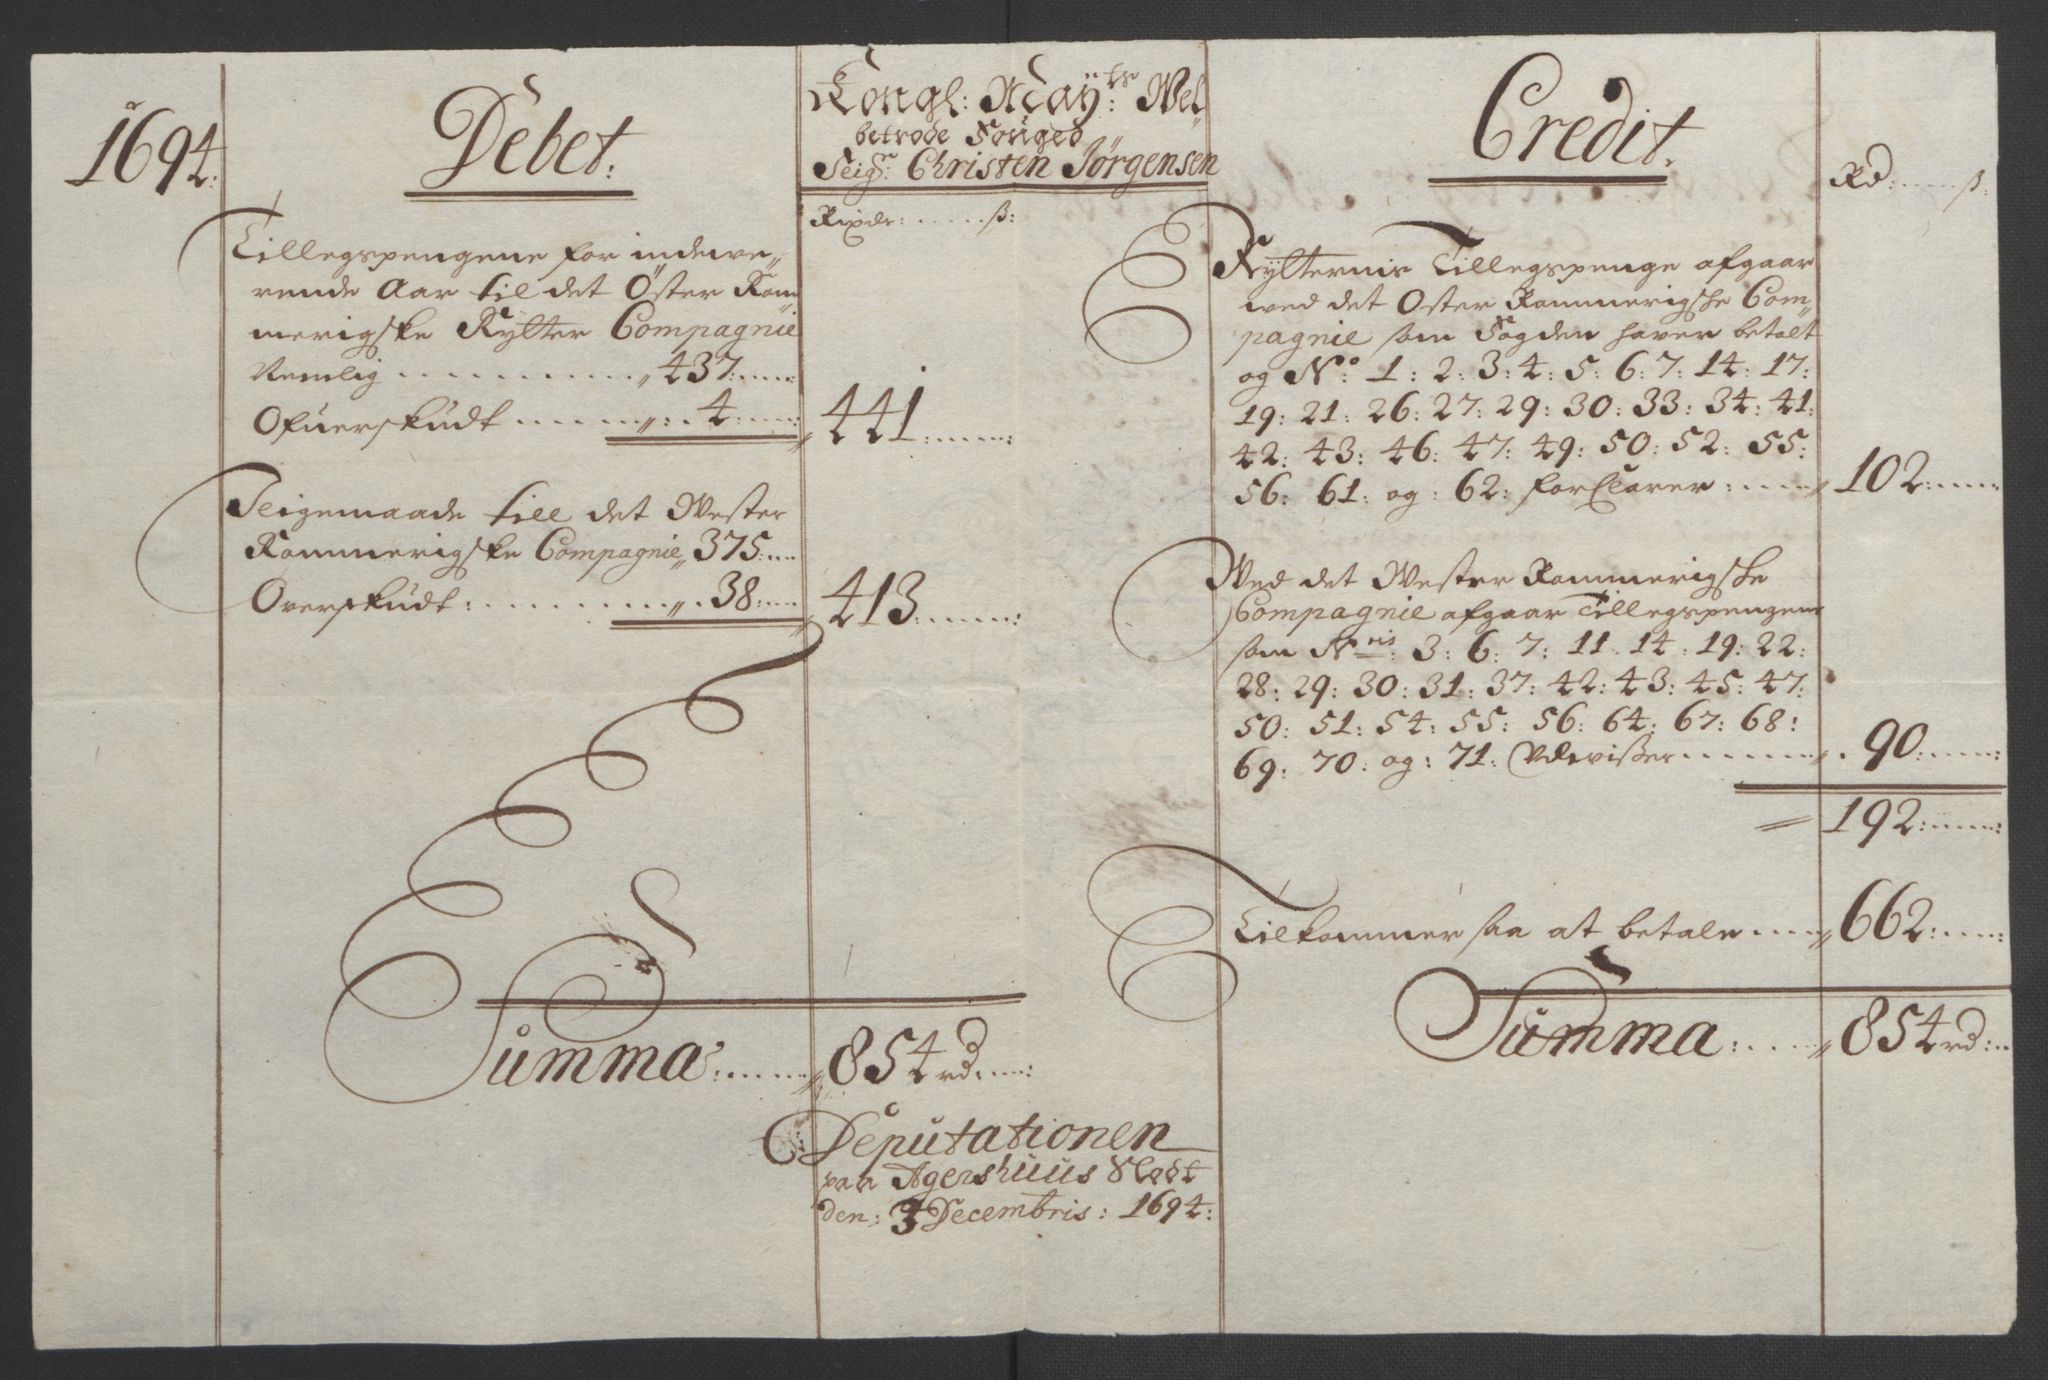 1694.
Debet.
Kongl: May:ts Wel
betrode Fouged
Seig:r Christen Jörgensen
Rixdr: ...... ß:
Tillegspengene for indewe„
rende Aar til det Öster Rom„
merigske Rytter Compagnie
Nemlig ............ „437: ....
Ofuerskudt ........ „: . 4: ....: „ 441: .....:
Leigemaade till det Wester
Rommerigske Compagnie „ 375: ....
Overskudt: ......... „. 38: .... „ 413: ......:
Summa: ...... „ 854 rd. ....:
Credit.
Rd: ..... ß:
Rytternis Tillegspenge afgaar
wed det Oster Rommerigshe Com„
pagnie som Fogden haver betalt
og No: 1: 2: 3: 4: 5: 6: 7: 14: 17:
19: 21: 26: 27: 29: 30: 33: 34: 41:
42: 43: 46: 47: 49: 50: 52: 55:
56: 61: og: 62: forClarer: .... „ 102: .....
Wed det Wester Rommerigshe
Compagnie afgaar Tillegspengene
som N:ris: 3: 6: 7: 11: 14: 19: 22:
28: 29: 30: 31: 37: 42: 43: 45: 47:
50: 51: 54: 55: 56: 64: 67: 68:
69: 70: og: 71: Udvißer ...... „. 90: ....:
= 192: .....:
Tilkommer saa at betale .... „ 662: ....:
Summa: .... „ 854 rd: ..
Deputationen
paa Agershuus Slodt
den: 3 Decembris: 1694: